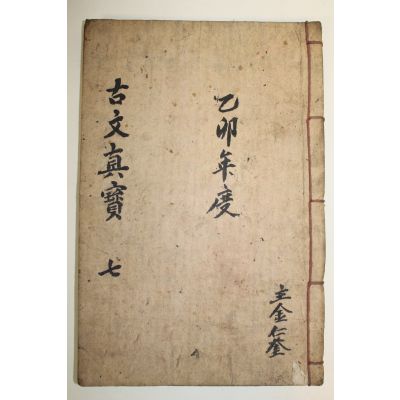 乙卯年度
古文真寶 七
主金仁奎